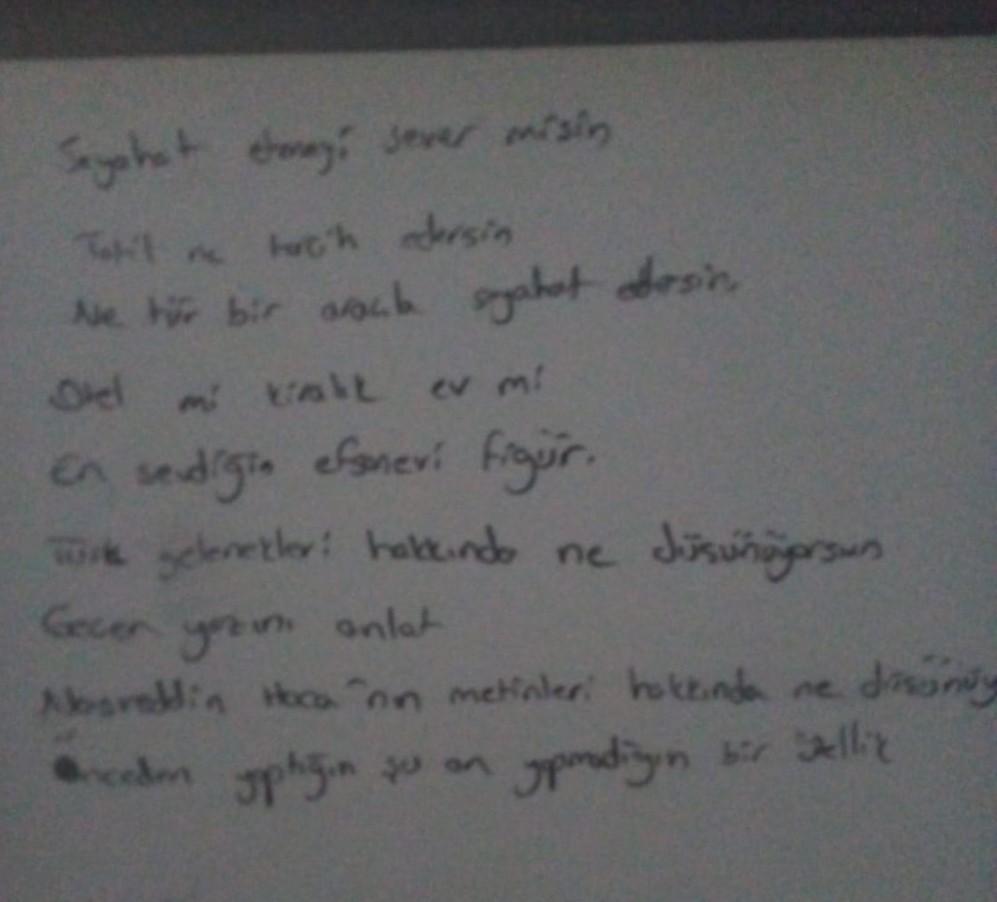 Seyahat etmeyi sever misin
Tatil ne tercih edersin
Ne tür bir araçla seyahat edersin.
Otel mi kiralık ev mi
En sevdiğin efsanevi figür.
Türk gelenekleri hakkında ne düşünüyorsun
Geçen yazını anlat
Nasreddin Hoca'nın metinleri hakkında ne düşünüy
Önceden yaptığın şu an yapmadığın bir özellik